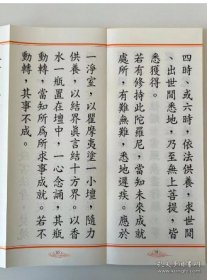 四時、或六時，依法供養，求世間
、出世間悉地，乃至無上菩提，皆
悉獲得。
若有修持此陀羅尼，當知未來成就
處所，有難無難，悉地遲疾。應於
一淨室，以瞿摩夷塗一小壇，隨力
供養，以結界真言結十方界。以香
水一瓶置在壇中，一心念誦，其瓶
動轉，當知所為所求事成就。若不
動轉，其事不成。